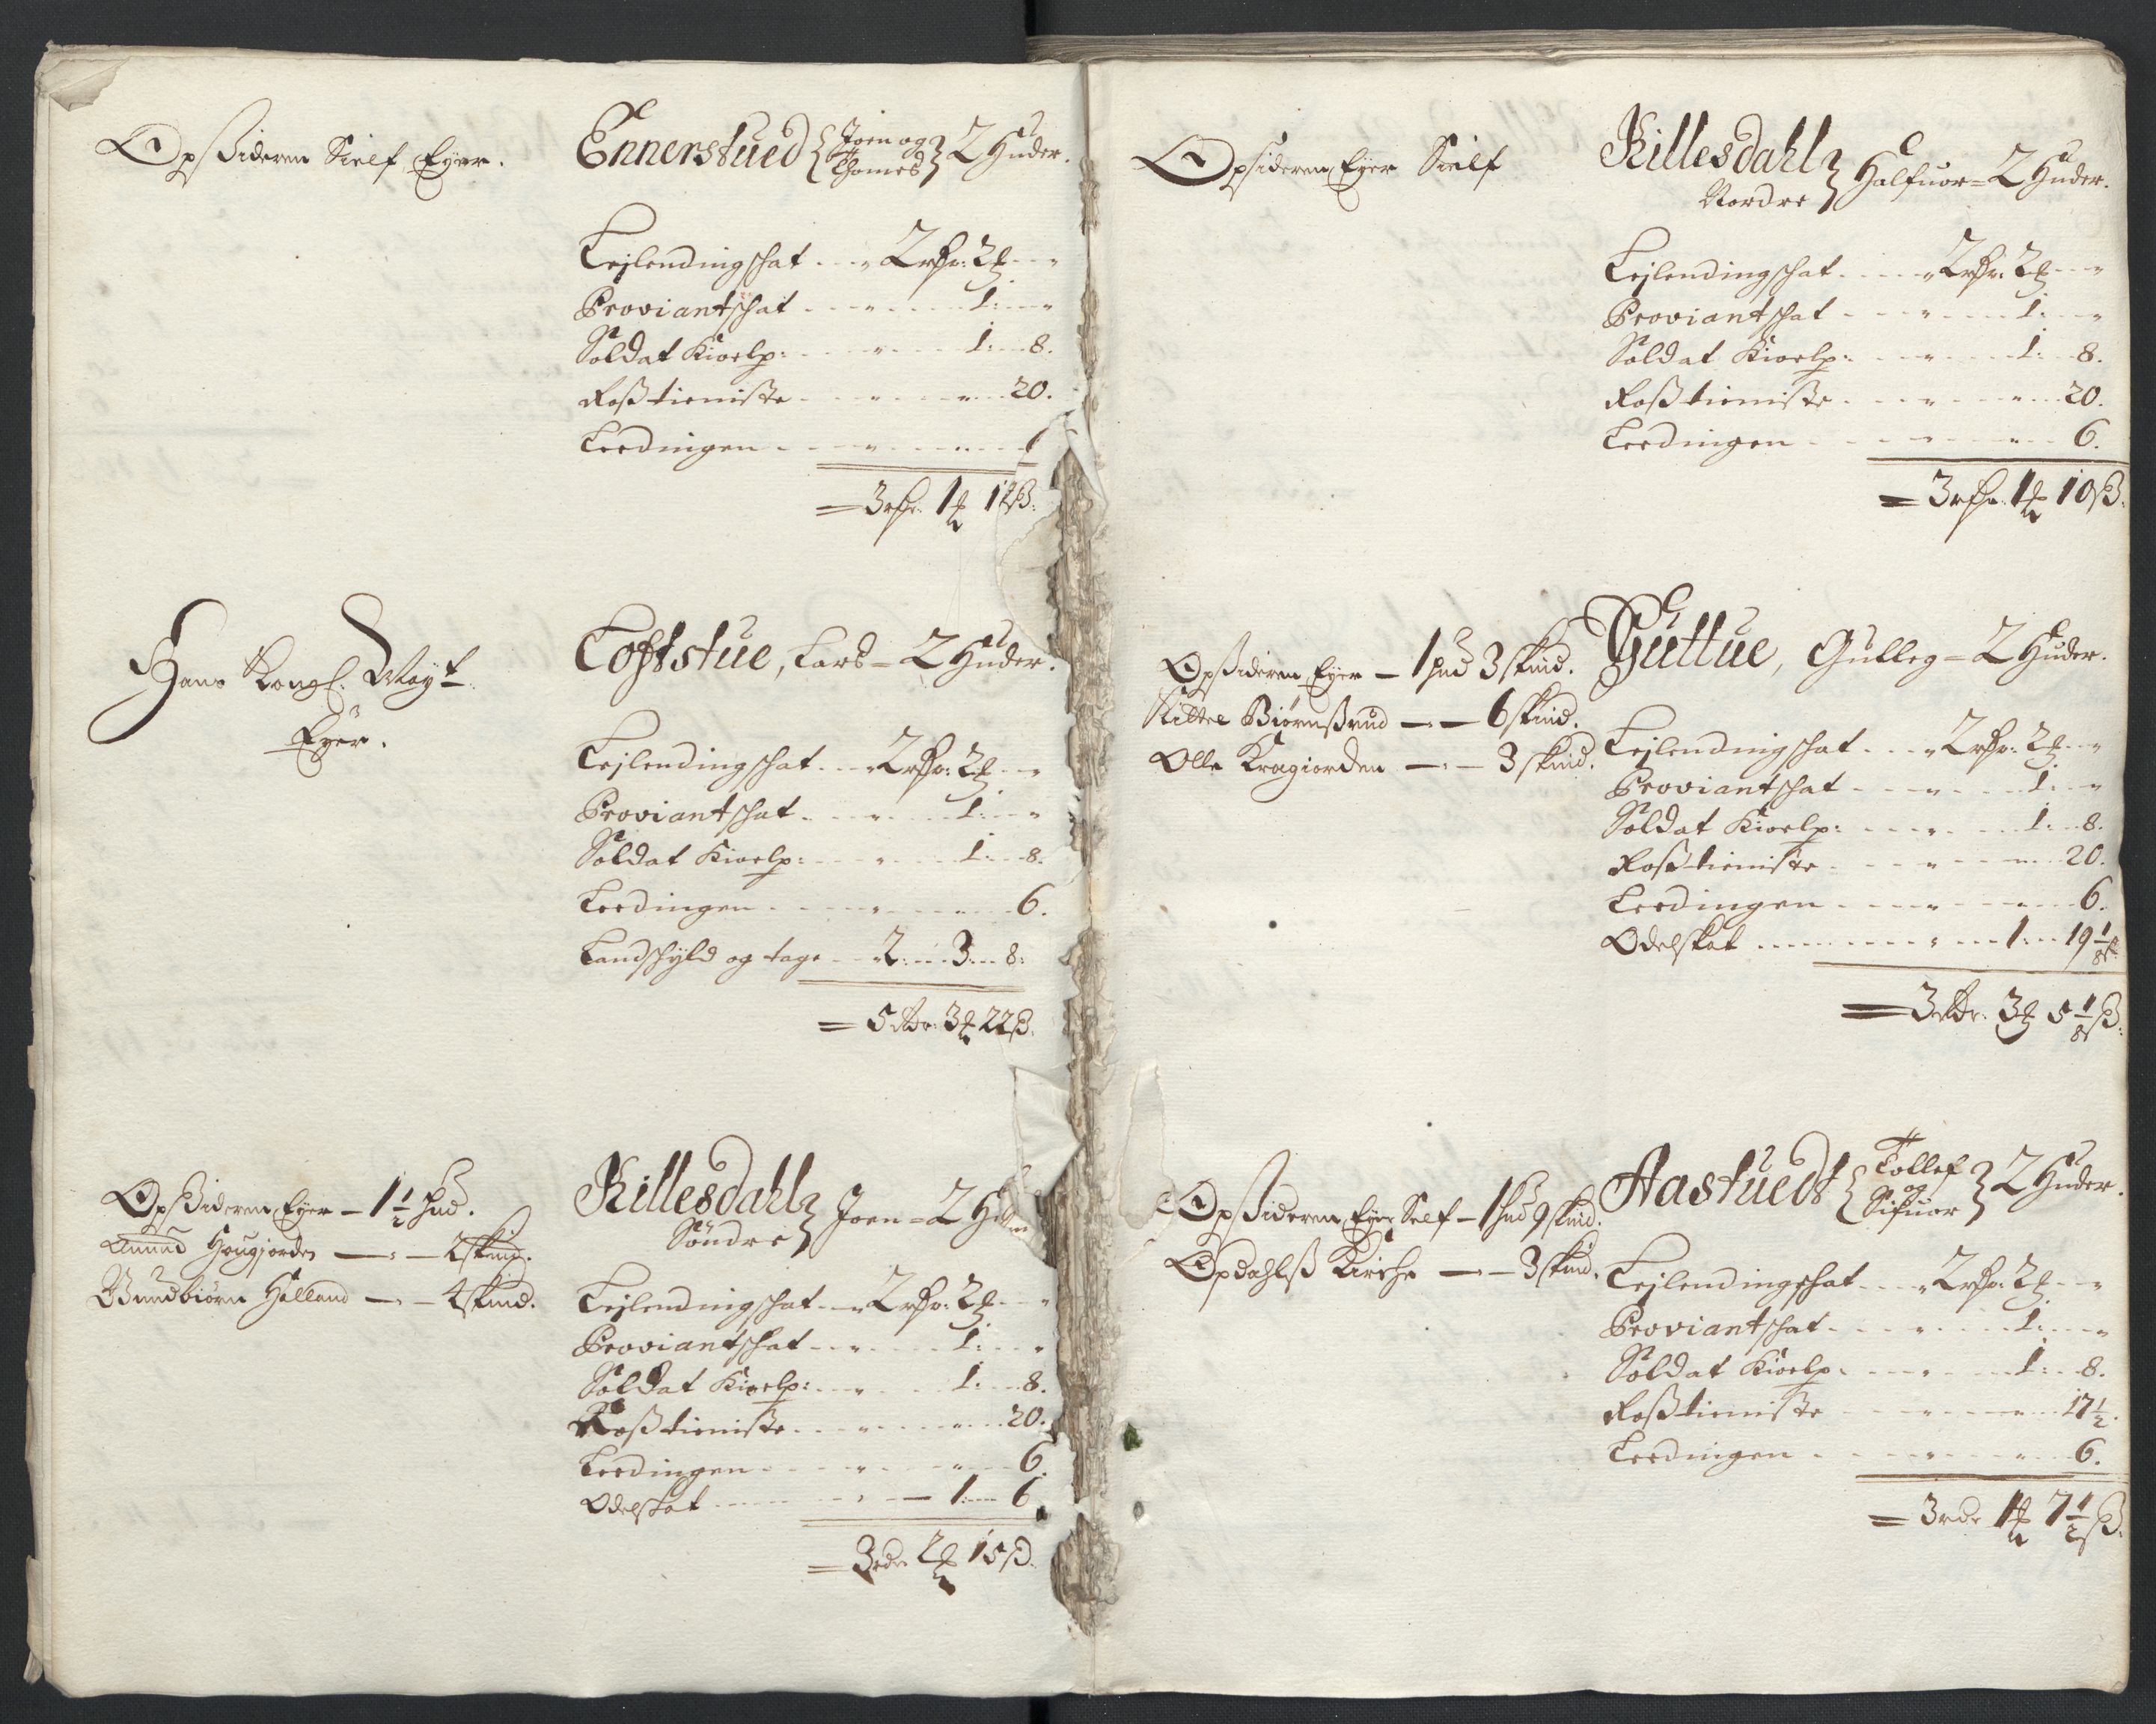 Opsideren Sielf Eyer.
Ennerstued { Joen og Thomes } 2 Huder.
Leylendingschat - - „ 2 rdr: 2 ort - „
Proviantschat - - „ - - 1: - „
Soldat Kioelp: - - „ - - 1: - 8.
Rostienniste - - „ - - „ - 20.
Leedingen - - „ - - „ -
= 3 rdr. 1 ort 1 ß:
Hans Kongl. Mayt
Eyer.
Toftstue, Lars = 2 Huder.
Leylendingschat - - „ 2 rdr: 2 ort - „
Proviantschat - - „ - - 1: - „
Soldat Kioelp: - - „ - - 1: - 8.
Leedingen - - „ - - „ - 6.
Landschyld og tage - - 2: - 3 - 8:
= 5 rdr: 3 ort 22 ß.
Opsideren Eyer - 1 1/2 hud.
Amund Hougjorden - 2 skind.
Gundbiørn Halland - 4 skind.
Killesdahl Søndre } Joen = 2 H
Leylendingschat - - „ 2 rdr: 2 ort - „
Proviantschat - - „ - - 1: - „
Soldat Kioelp: - - „ - - 1: - 8.
Rostienniste - - „ - - „ - 20.
Leedingen - - „ - - „ - 6.
Odelskat - - - 1: - 6
= 3 rdr 2 ort 15 ß.
Opsideren Eyer Sielf
Killesdahl Nordre } Halfuor = 2 Huder.
Leylendingschat - - „ 2 rdr: 2 ort - „
Proviantschat - - „ - - 1: - „
Soldat Kioelp: - - „ - - 1: - 8.
Rostienniste - - „ - - „ - 20.
Leedingen - - „ - - „ - 6.
= 3 rdr. 1 ort 10 ß.
Opsideren Eyer - 1 hud 3 skind.
Kittel Biørnsrud - 6 skind.
Olle Kragiorden - 3 skind.
Guttue, Gulleg = 2 Huder.
Leylendingschat - - „ 2 rdr: 2 ort - „
Proviantschat - - „ - - 1: - „
Soldat Kioelp: - - „ - - 1: - 8.
Rostienniste - - „ - - „ - 20.
Leedingen - - „ - - „ - 6.
Odelskat - - „ - 1: - 19 1/8 ß.
= 3 rdr. 3 ort 5 1/8 ß:
Opsideren Eyer Self - 1 hud 9 skind.
Opdahls Kirche - 3 skind.
Aastuedt { Tollef og Sifuor } 2 Huder.
Leylendingschat - - „ 2 rdr: 2 ort - „
Proviantschat - - „ - - 1: - „
Soldat Kioelp: - - „ - - 1: - 8.
Rostienniste - - „ - - „ - 17 1/2.
Leedingen - - „ - - „ - 6.
= 3 rdr 1 ort 7 1/2 ß.